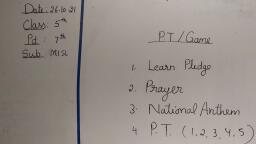 Date: 26.10.21
Class: 5th
Pd: 7th
Sub:
P.T/Game
1. Learn Pledge
2. Prayer
3. National Anthem
4 P.T. (1,2,3,4,5)